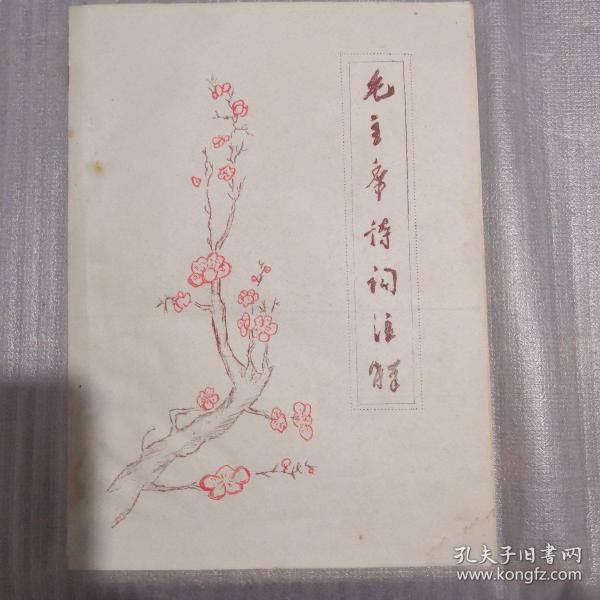 毛主席诗词注解
孔夫子旧书网
www.kongfz.com